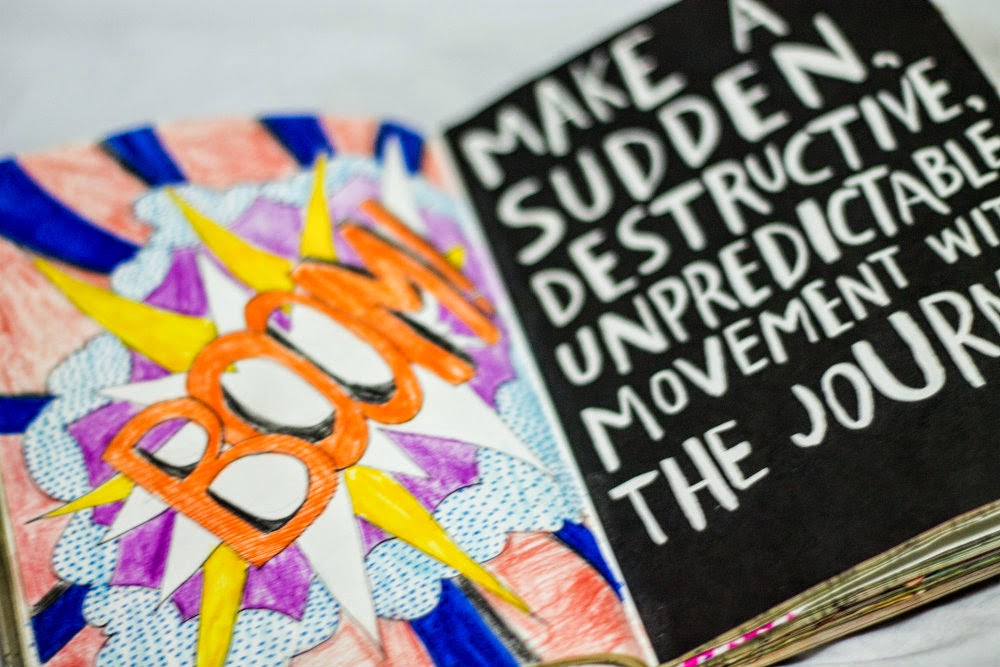 BOOM!
MAKE A
SUDDEN,
DESTRUCTIVE,
UNPREDICTABLE
MOVEMENT WIT
THE JOURN